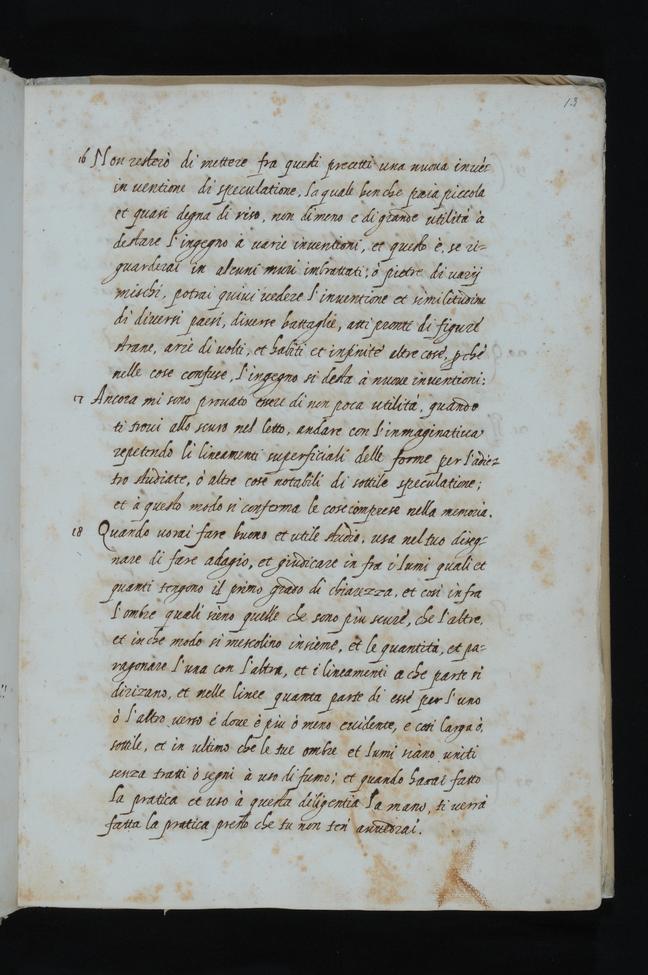 13
16 Non resterò di mettere fra questi precetti una nuova inven
in ventione di speculatione, la quale benche paia piccola
et quasi degna di riso, non dimeno e di grande utilità a
destare l'ingegno à varie inventioni, et questo è, se ri-
guarderai in alcuni muri imbrattati, ò pietre di varij
mischi, potrai quivi vedere l'inventione et similitudini
di diversi paesi, diverse battaglie, atti pronti di figure
strane, arie di volti, et habiti et infinite altre cose, p che
nelle cose confuse, l'ingegno si desta à nuove inventioni:
17 Ancora mi sono provato essere di non poca utilità, quando
ti trovi allo scuro nel letto, andare con l'immaginativa
repetendo li lineamenti superficiali delle forme per l'adie-
tro studiate, ò altre cose notabili di sottile speculatione;
et à questo modo si conferma le cose comprese nella memoria.
18 Quando vorai fare buono et utile studio, usa nel tuo diseg-
nare di fare adagio, et giudicare in fra i lumi quali et
quanti tengono il primo grado di chiarezza, et così in fra
l'ombre quali sieno quelle che sono più scure, che l'altre,
et in che modo si mescolino insieme, et le quantità, et pa-
ragonare l'una con l'altra, et i lineamenti a che parte si
dirizano, et nelle linee quanta parte di esse per l'uno
ò l'altro verso é dove ò piu ò meno evidente, e così larga ò
sottile, et in ultimo che le tue ombre et lumi siano uniti
senza tratti ò segni à uso di fumo; et quando harai fatto
la pratica et uso à questa diligentia la mano, ti verrà
fatta la pratica presto che tu non ten' avvedrai.